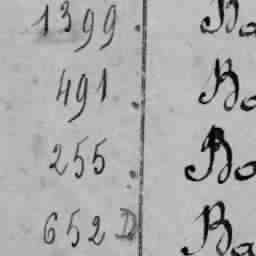 1399. Ba
491. Ba
255. Ba
652 D Ba